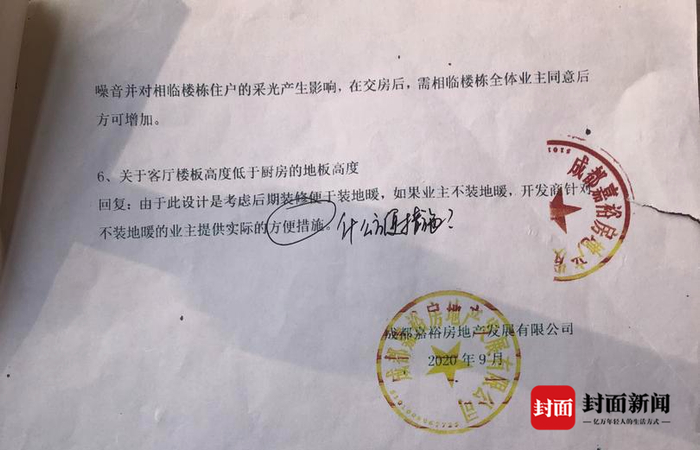 噪音并对相临楼栋住户的采光产生影响，在交房后，需相临楼栋全体业主同意后
方可增加。
6、关于客厅楼板高度低于厨房的地板高度
回复：由于此设计是考虑后期装修便于装地暖，如果业主不装地暖，开发商针对
不装地暖的业主提供实际的方便措施。什么方便措施？
成都嘉裕房地产发
成都嘉裕房地产发展有限公司
2020年9月
成都嘉裕房地产发展有限公司
封面 封面新闻
—亿万年轻人的生活方式—